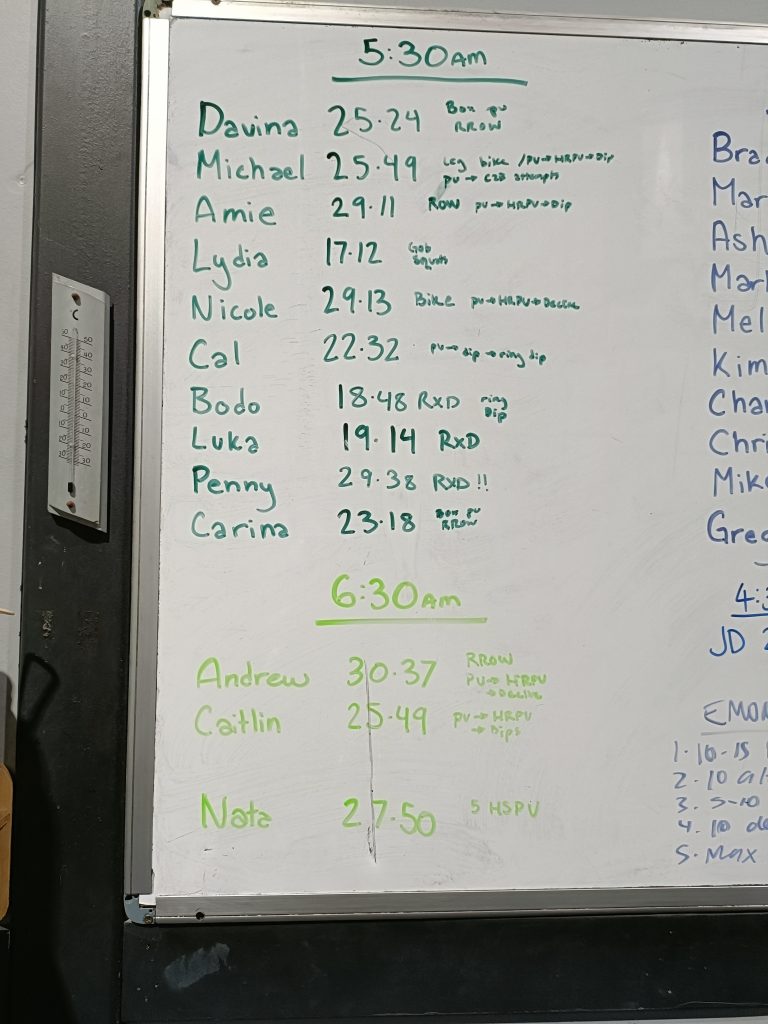 5:30AM
Davina 25.24 Box PU
RROW
Michael 25.49 Leg bike / PU→HRPU→Dip
PU → C2B attempts
Amie 29.11 ROW PU→HRPU→Dip
Lydia 17.12 Gob
Squats
Nicole 29.13 Bike PU→HRPU→Decline
Cal 22.32 PU→dip→ring dip
Bodo 18.48 RXD ring
Dip
Luka 19.14 RXD
Penny 29.38 RXD !!
Carina 23.18 Box PU
RROW
6:30AM
Andrew 30.37 RROW
PU→HRPU
→Decline
Caitlin 25.49 PU→HRPU
→Dips
Nata 27.50 5 HSPU
Bra
Mar
Ash
Mar
Mel
Kim
Char
Chri
Mike
Greg
4:3
JD 2
EMOM
1. 10-15
2. 10 al
3. 5-10
4. 10 de
5. Max
C